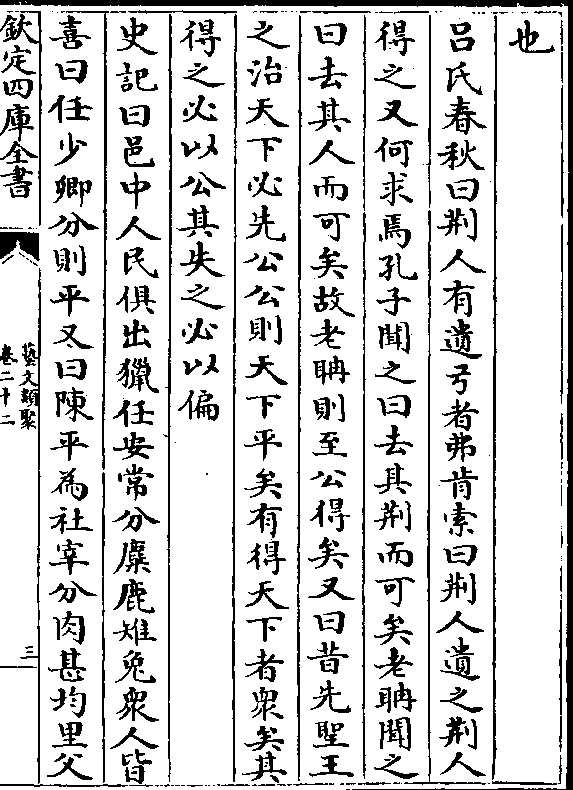 也
呂氏春秋曰荆人有遺弓者弗肯索曰荆人遺之荆人
得之又何求焉孔子聞之曰去其荆而可矣老聃聞之
曰去其人而可矣故老聃則至公得矣又曰昔先聖王
之治天下必先公公則天下平矣有得天下者衆矣其
得之必以公其失之必以偏
史記曰邑中人民俱出獵任安常分麋鹿雉兔衆人皆
喜曰任少卿分則平又曰陳平為社宰分肉甚均里父
欽定四庫全書
藝文類聚
卷二十二
三